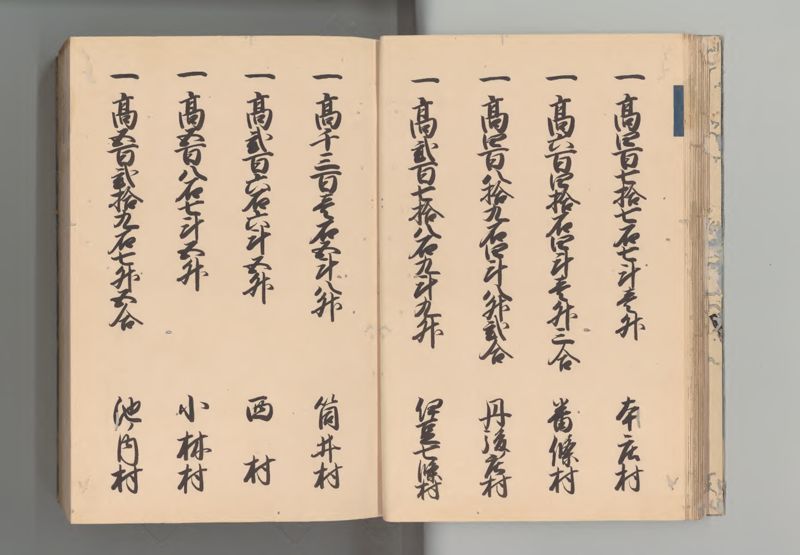 一高四百七拾七石七斗壱升 本庄村
一高六百四拾石四斗壱升二合 番條村
一高四百八拾九石四斗八升弐合 丹後庄村
一高弐百七拾八石九斗九升 伊豆七條村
一高千三百壱石五斗八升 筒井村
一高弐百六石六斗五升 西村
一高五百八石七斗五升 小林村
一高五百弐拾九石七升五合 池ノ内村